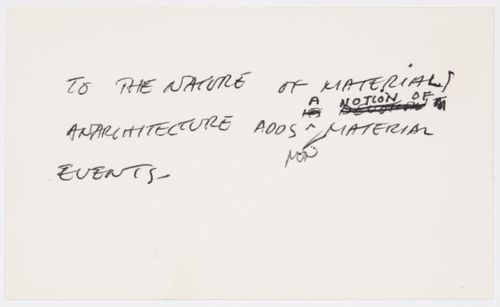 TO THE NATURE OF MATERIALS
A NOTION OF
ANARCHITECTURE ADDS ^ MATERIAL
NON
EVENTS—